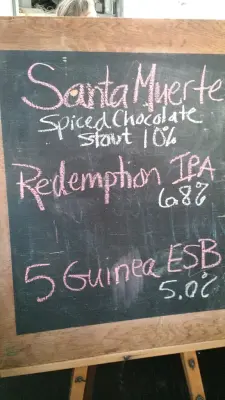 Santa Muerte
Spiced Chocolate
Stout 10%
Redemption IPA
6.8%
5 Guinea ESB
5.0%